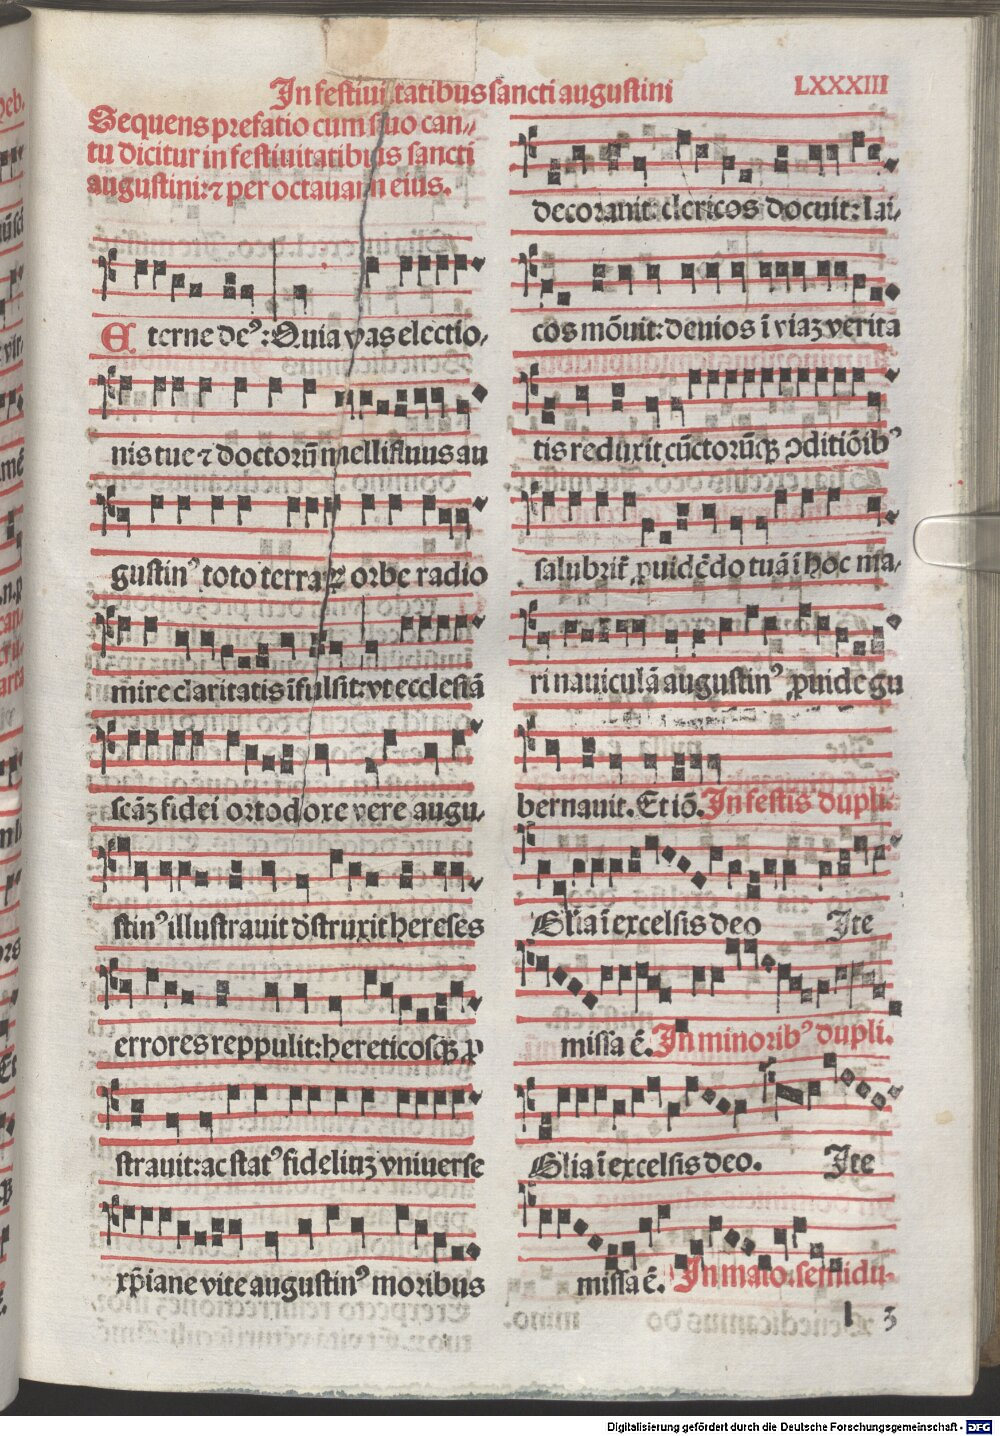 In festiuitatibus sancti augustini
LXXXIII
Sequens prefatio cum suo can⸗
tu dicitur in festiuitatibus sancti
augustini: ⁊ per octauam eius.
Eterne deꝰ: Quia vas electio⸗
nis tue ⁊ doctorū mellifluus au
gustinꝰ toto terraꝝ orbe radio
mire claritatis īfulsit: vt ecclesiā
scāȝ fidei ortodoxe vere augu⸗
stinꝰ illustrauit dstruxit hereses
errores reppulit: hereticosqȝ ꝓ
strauit: ac statꝰ fideliuȝ vniuerse
xp̄iane vite augustinꝰ moribus
decorauit: clericos docuit: lai⸗
cos mōuit: deuios ī viaȝ verita
tis reduxit cūctorūqȝ ꝯditiōibꝰ
salubrit̄ ꝓuidēdo tuā ī hoc ma⸗
ri nauiculā augustinꝰ ꝓuide gu
bernauit. Et iō. In festis dupli⸗
Glia ī excelsis deo Ite
missa ē. In minoribꝰ dupli.
Glia ī excelsis deo. Ite
missa ē. In maio. semidu⸗
l 3
Digitalisierung gefördert durch die Deutsche Forschungsgemeinschaft - DFG